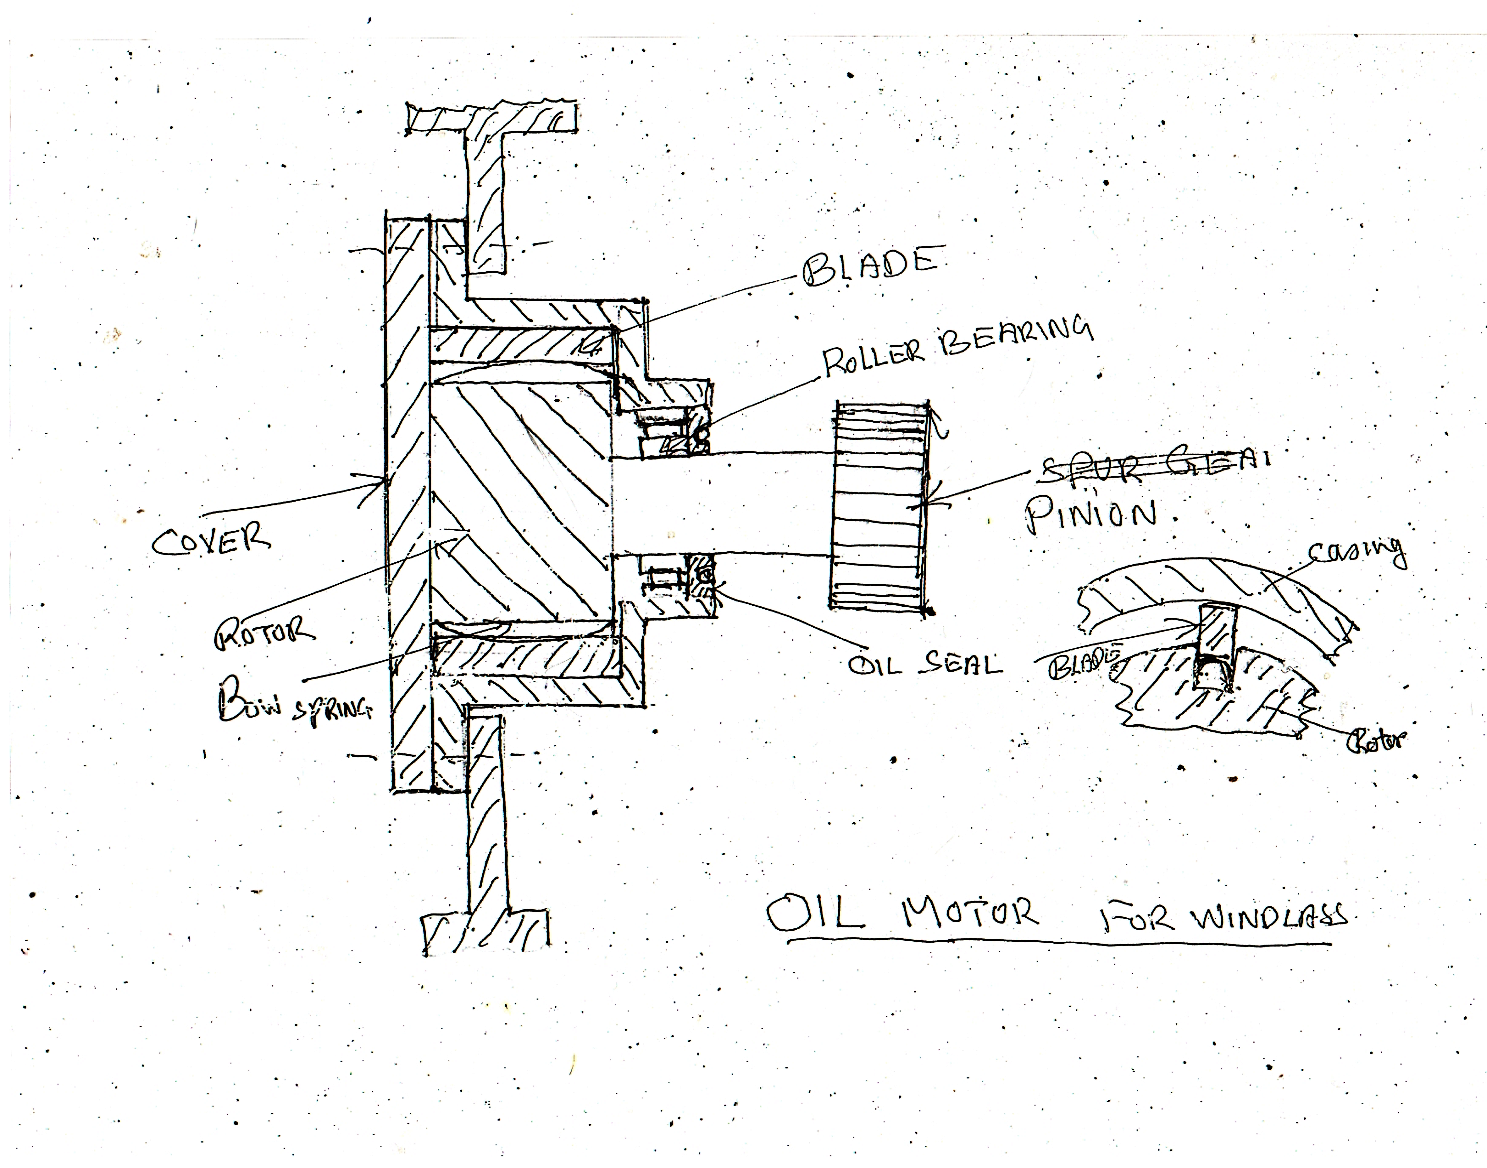 BLADE
ROLLER BEARING
SPUR GEAR
PINION.
COVER
ROTOR
BOW SPRING
OIL SEAL
casing
BLADE
Rotor
OIL MOTOR FOR WINDLASS